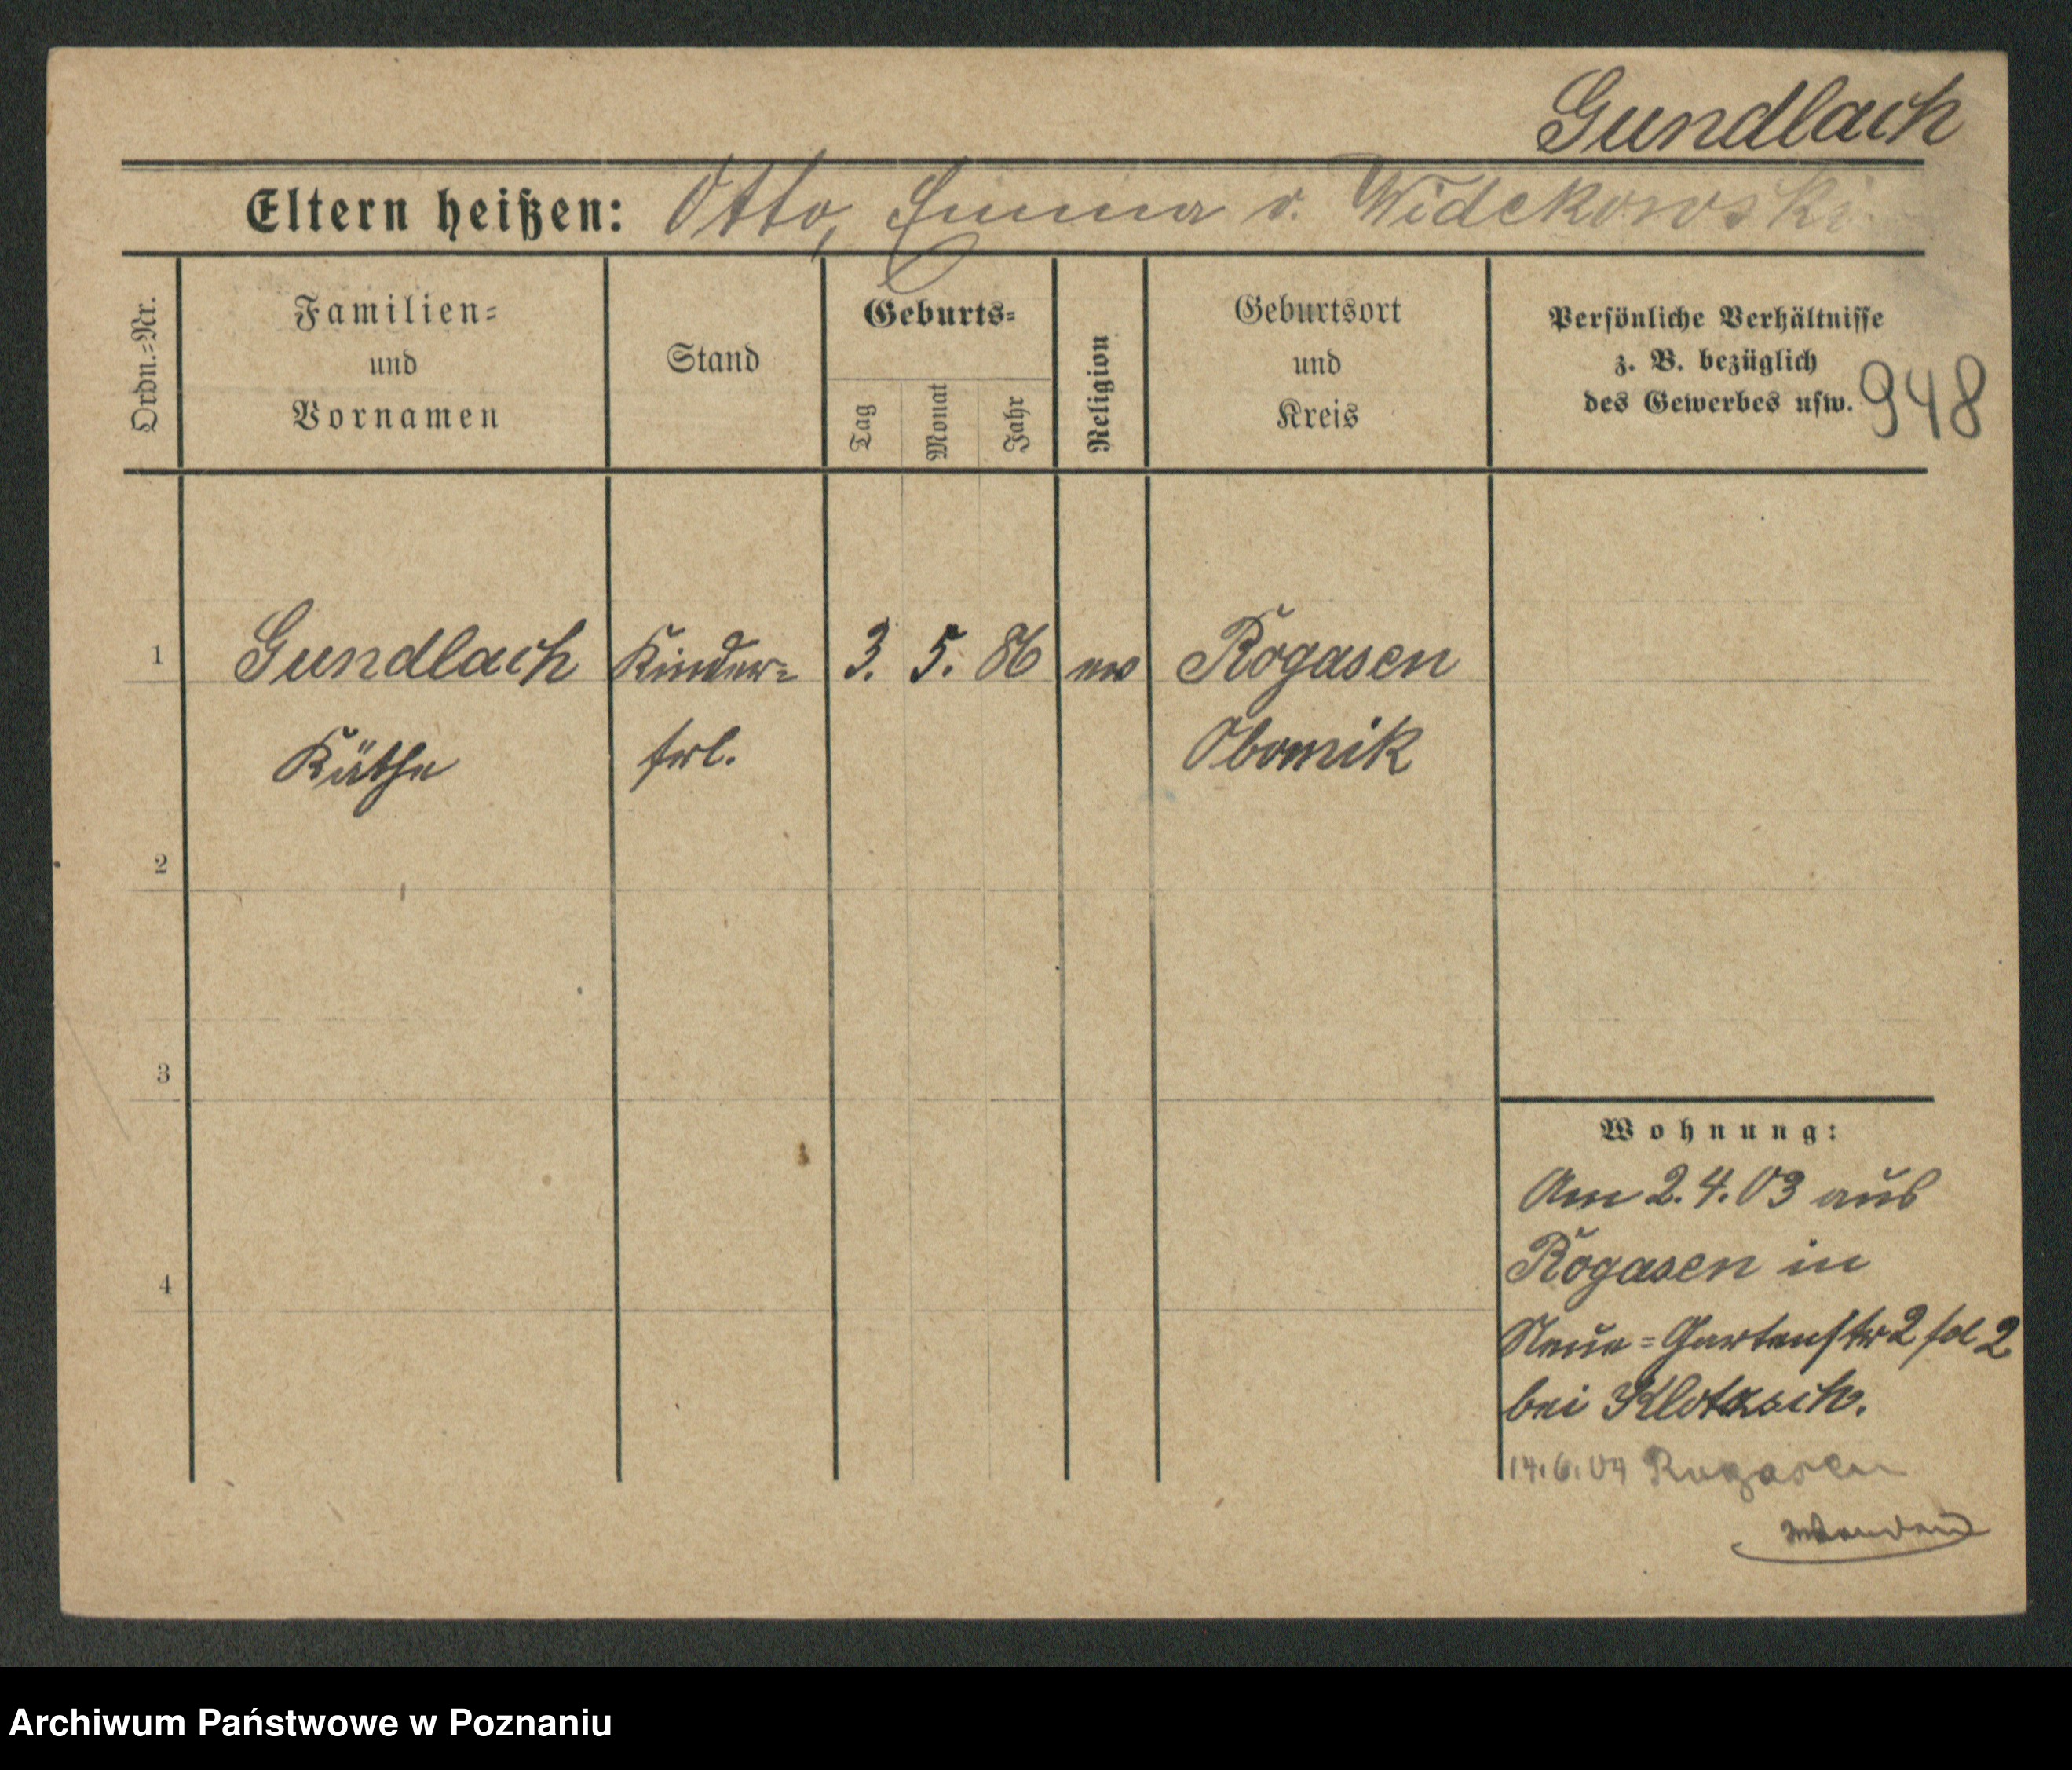 Gundlach
Eltern heißen: Otto, Emma v. Widekowski
Ordn.=Nr.
Familien=
und
Vornamen
Stand
Geburts=
Tag
Monat
Jahr
Religion
Geburtsort
und
Kreis
Persönliche Verhältnisse
z. B. bezüglich
des Gewerbes usw.
948
1 Gundlach Kinder= 3. 5. 86 ev Rogasen
Käthe frl. Obornik
2
3
4
Wohnung:
Am 2.4.03 aus
Rogasen in
Neue=Gartenstr 2
bei Klotzsch.
14.6.04 Rogasen
Archiwum Państwowe w Poznaniu